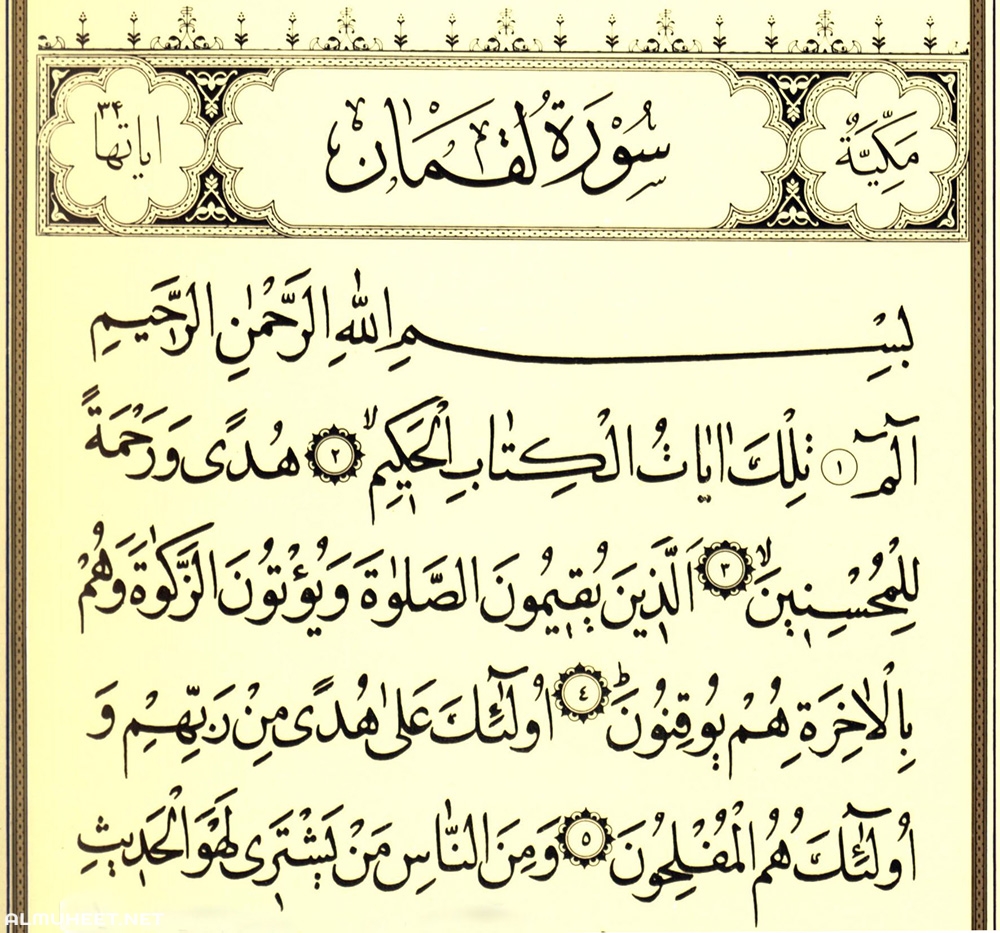 مَكِّيَّةٌ سُوْرَةُ لُقْمَانَ اياتها ٣۴
بِسْمِ اللّٰهِ الرَّحْمٰنِ الرَّحيمِ
الٓمٓ ١ تِلْكَ اٰيَاتُ الْكِتٰابِ الْحَكيمِۙ ٢ هُدًى وَرَحْمَةً
لِلْمُحْسِنينَۙ ٣ اَلَّذينَ يُقيمُونَ الصَّلٰوةَ وَيُؤْتُونَ الزَّكٰوةَ وَهُمْ
بِالْاٰخِرَةِ هُمْ يُوقِنُونَۜ ٤ اُولٰٓئِكَ عَلٰى هُدًى مِنْ رَبِّهِمْ وَ
اُولٰٓئِكَ هُمُ الْمُفْلِحُونَ ٥ وَمِنَ النَّاسِ مَنْ يَشْتَرى لَهْوَ الْحَديثِ
ALMUHEET.NET